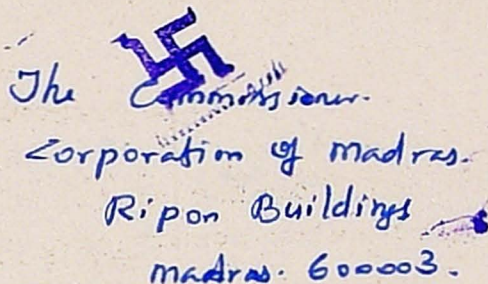 The Commissioner.
Corporation of Madras.
Ripon Buildings
Madras. 600003.